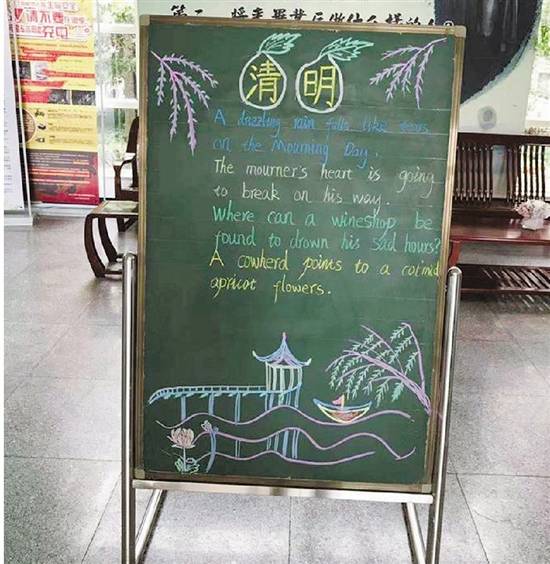 第二 将来毕业后做什么样的
请不要
充电
清明
A dazzling rain falls like tears
on the Mourning Day.
The mourner's heart is going
to break on his way.
Where can a wineshop be
found to drown his sad hours?
A cowherd points to a cot'mid
apricot flowers.